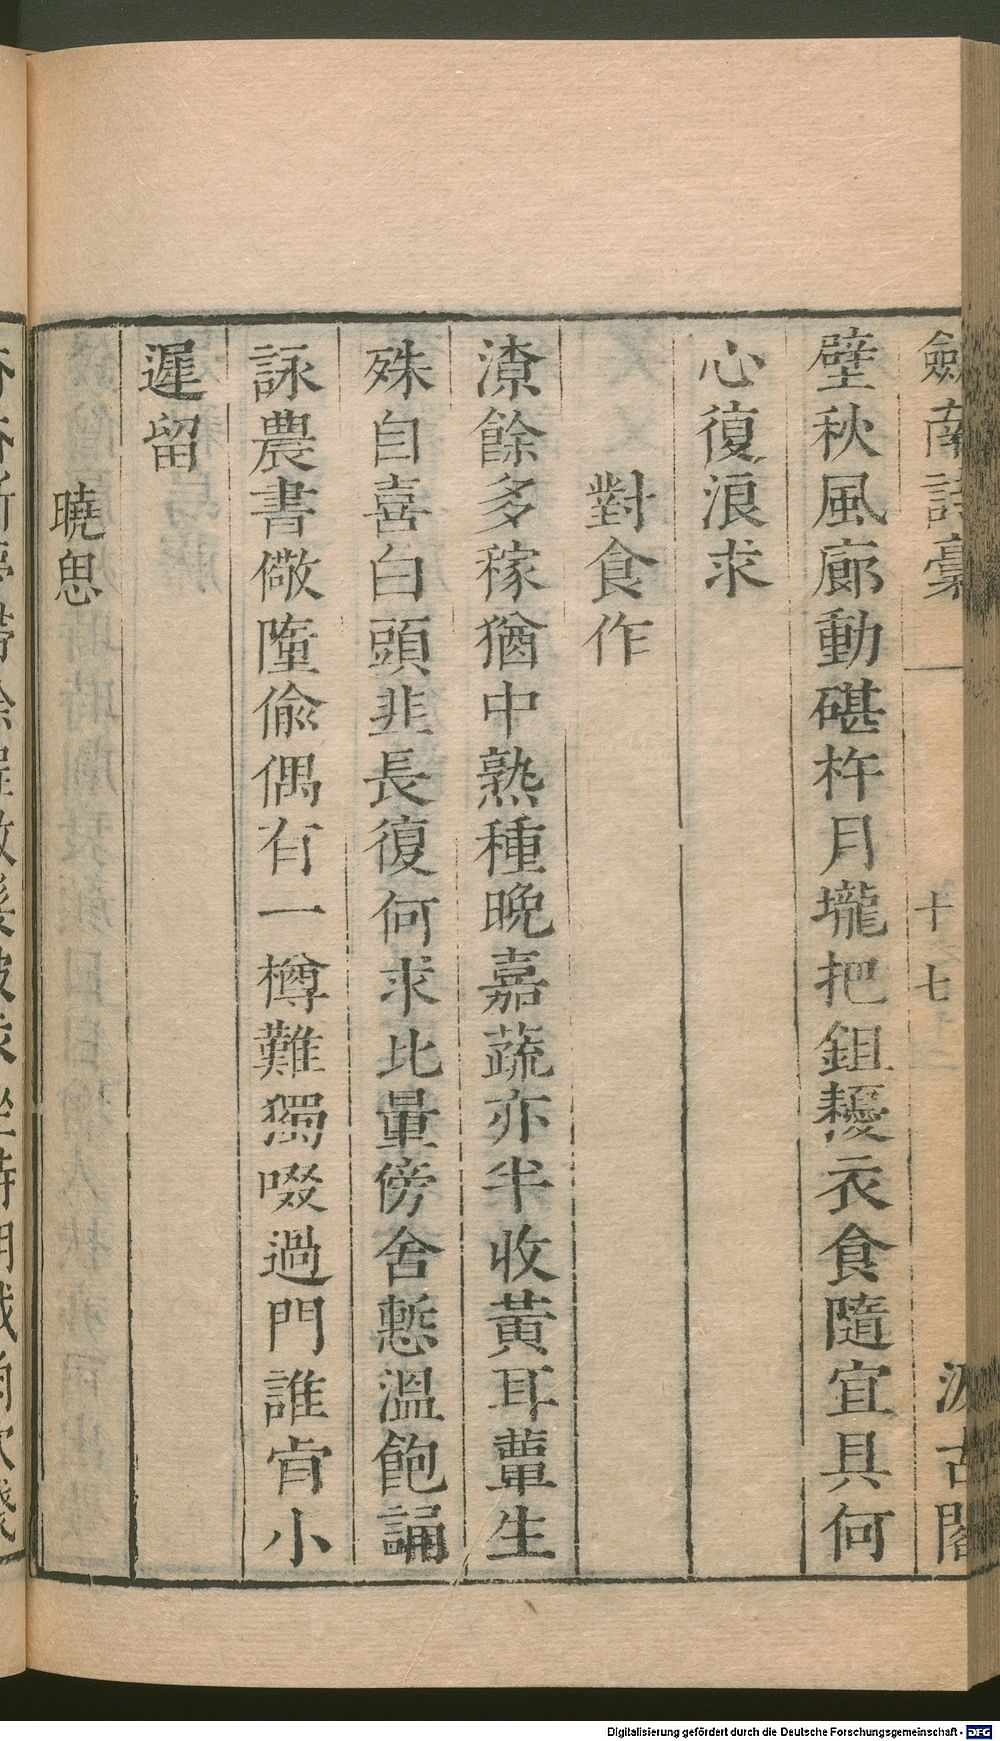 劍南詩稾 十七 汲古閣
壁秋風廊動碪杵月壠把鉏耰衣食隨宜具何
心復浪求
對食作
潦餘多稼猶中熟種晚嘉蔬亦半收黃耳蕈生
殊自喜白頭韭長復何求比量傍舍慙溫飽誦
詠農書儆墮偷偶有一樽難獨啜過門誰肯小
遲留
曉思
Digitalisierung gefördert durch die Deutsche Forschungsgemeinschaft - DFG